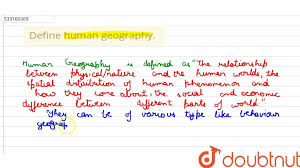 533760365
Define human geography.
Human Geography is defined as "The relationship
between physical/nature and the human worlds, the
spatial distribution of human phenomenon and
how they come about, the social and economic
difference between different parts of world."
They can be of various type like behaviour
geograp
doubtnut